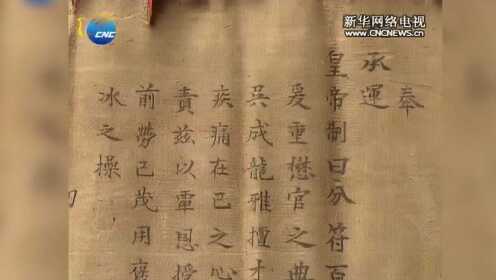 CNC
新华网络电视
www.cncnews.cn
奉
承運
皇帝制曰分符百
爰重懋官之典
吳成龍雅擅才
疾痛在己之心
責茲以覃恩授
前勞已茂用褒
冰之操